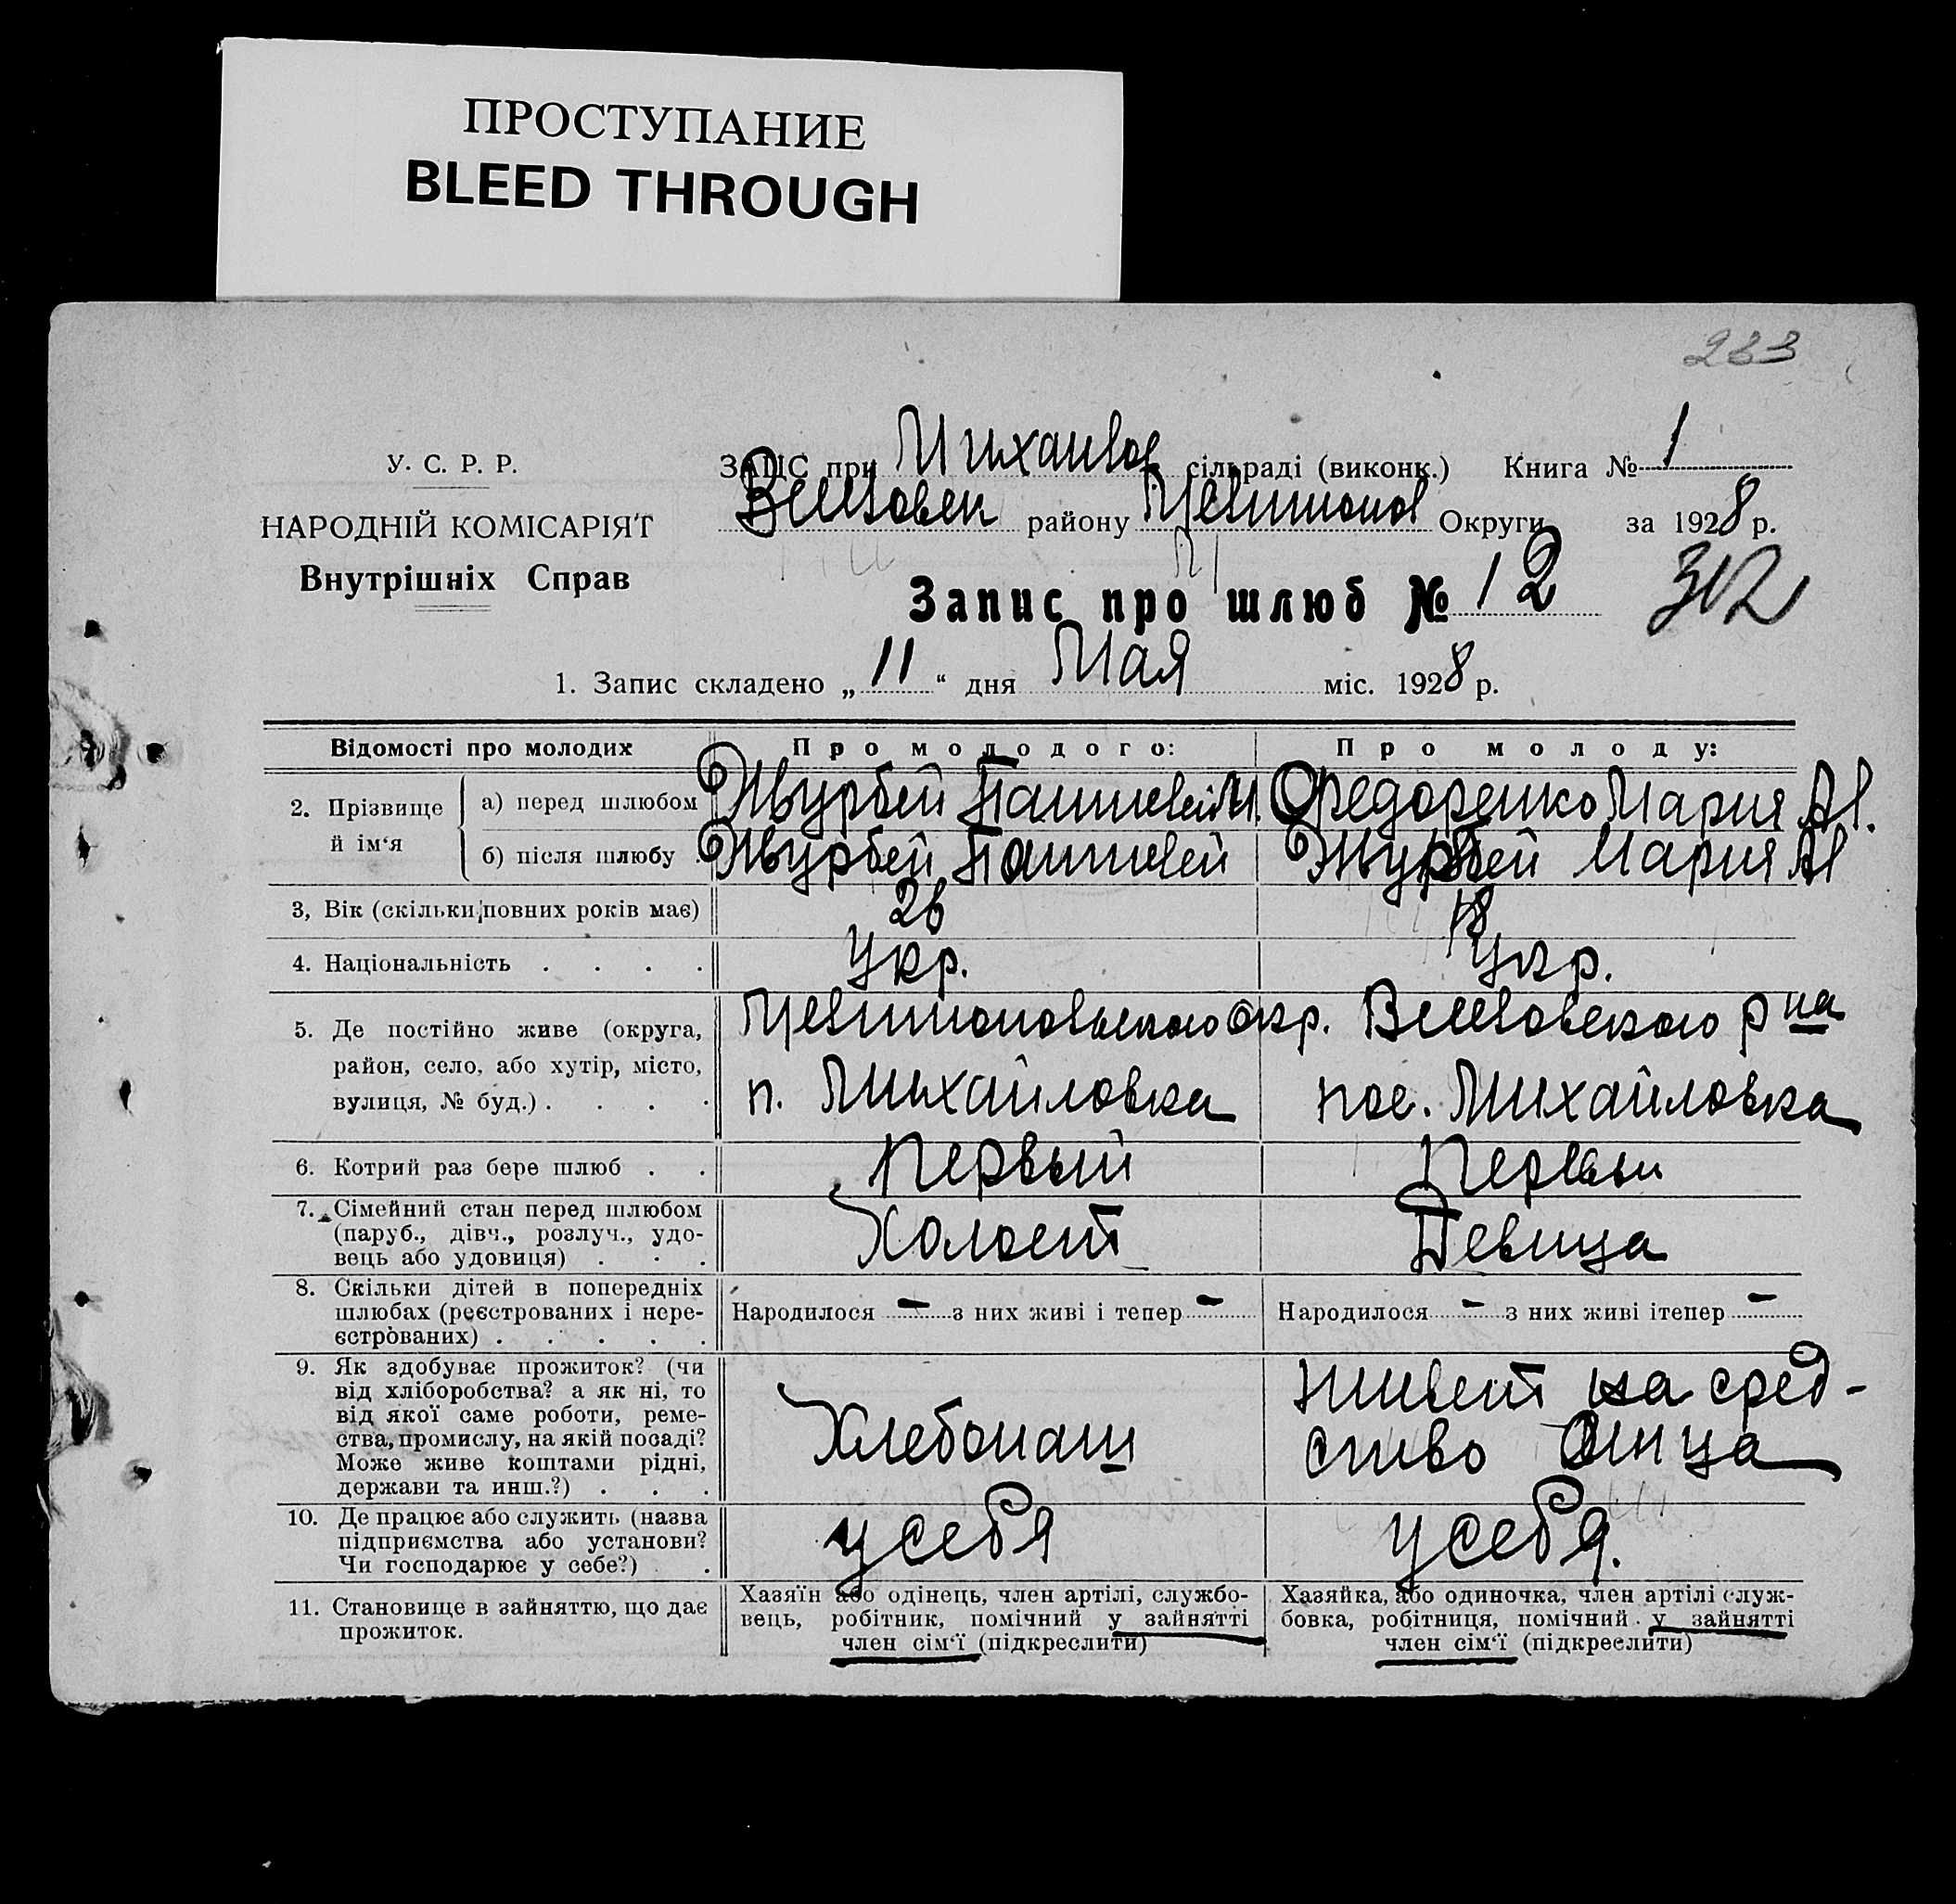 ПРОСТУПАНИЕ
BLEED THROUGH
233
У. С. Р. Р.
НАРОДНІЙ КОМІСАРІЯТ
Внутрішніх Справ
ЗАГС при Михайлов сільраді (виконк.) Книга № 1
району Округи за 1928 р.
Запис про шлюб № 12
312
1. Запис складено „11“ дня Мая міс. 1928 р.
Відомості про молодих
Про молодого:
Про молоду:
2. Прізвище й ім‘я
а) перед шлюбом
Журбей Пантелей М.
Федоренко Мария Ал.
б) після шлюбу
Журбей Пантелей
Журбей Мария Ал
3, Вік (скільки повних років має)
26
18
4. Національність . . . .
Укр.
Укр.
5. Де постійно живе (округа,
район, село, або хутір, місто,
вулиця, № буд.) . . . .
окр.
р на
п. Михайловка
пос. Михайловка
6. Котрий раз бере шлюб . .
Первый
Первый
7. Сімейний стан перед шлюбом
(паруб., дівч., розлуч., удо-
вець або удовиця) . . .
Холост
Девица
8. Скільки дітей в попередніх
шлюбах (реєстрованих і нере-
єстрованих) . . . . .
Народилося - з них живі і тепер -
Народилося - з них живі ітепер -
9. Як здобуває прожиток? (чи
від хліборобства? а як ні, то
від якої саме роботи, реме-
ства, промислу, на якій посаді?
Може живе коштами рідні,
держави та инш.?) . . .
Хлебопаш
живет на сред-
ство Отца
10. Де працює або служить (назва
підприємства або установи?
Чи господарює у себе?) .
у себя
у себя.
11. Становище в зайняттю, що дає
прожиток.
Хазяїн або одінець, член артілі, службо-
вець, робітник, помічний у зайнятті
член сім‘ї (підкреслити)
Хазяйка, або одиночка, член артілі служ-
бовка, робітниця, помічний у зайнятті
член сім‘ї (підкреслити)